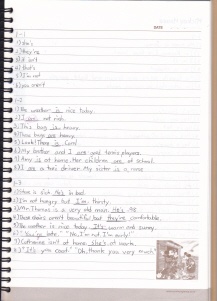 DATE
1-1
1) she's
2) they're
3) it isn't
4) that's
5) I'm not
6) you aren't
1-2
1) The weather is nice today.
2) I am not rich.
3) This bag is heavy.
4) These bags are heavy.
5) Look! There is Carol.
6) My brother and I are good tennis players.
7) Amy is at home. Her children are at school.
8) I am a taxi driver. My sister is a nurse.
1-3
1) Steve is sick. He's in bed.
2) I'm not hungry but I'm thirsty.
3) Mr. Thomas is a very old man. He's 98.
4) These chairs aren't beautiful but they're comfortable.
5) The weather is nice today. It's warm and sunny.
6) " You're late." "No, I'm not. I'm early!"
7) Catherine isn't at home. She's at work.
8) " It's your coat." "Oh, thank you very much."